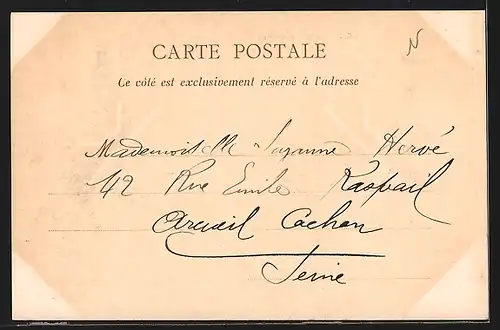 N
CARTE POSTALE
Ce côté est exclusivement réservé à l'adresse
Mademoiselle Suzanne Hervé
42 Rue Emile Raspail
Arcueil Cachan
Seine